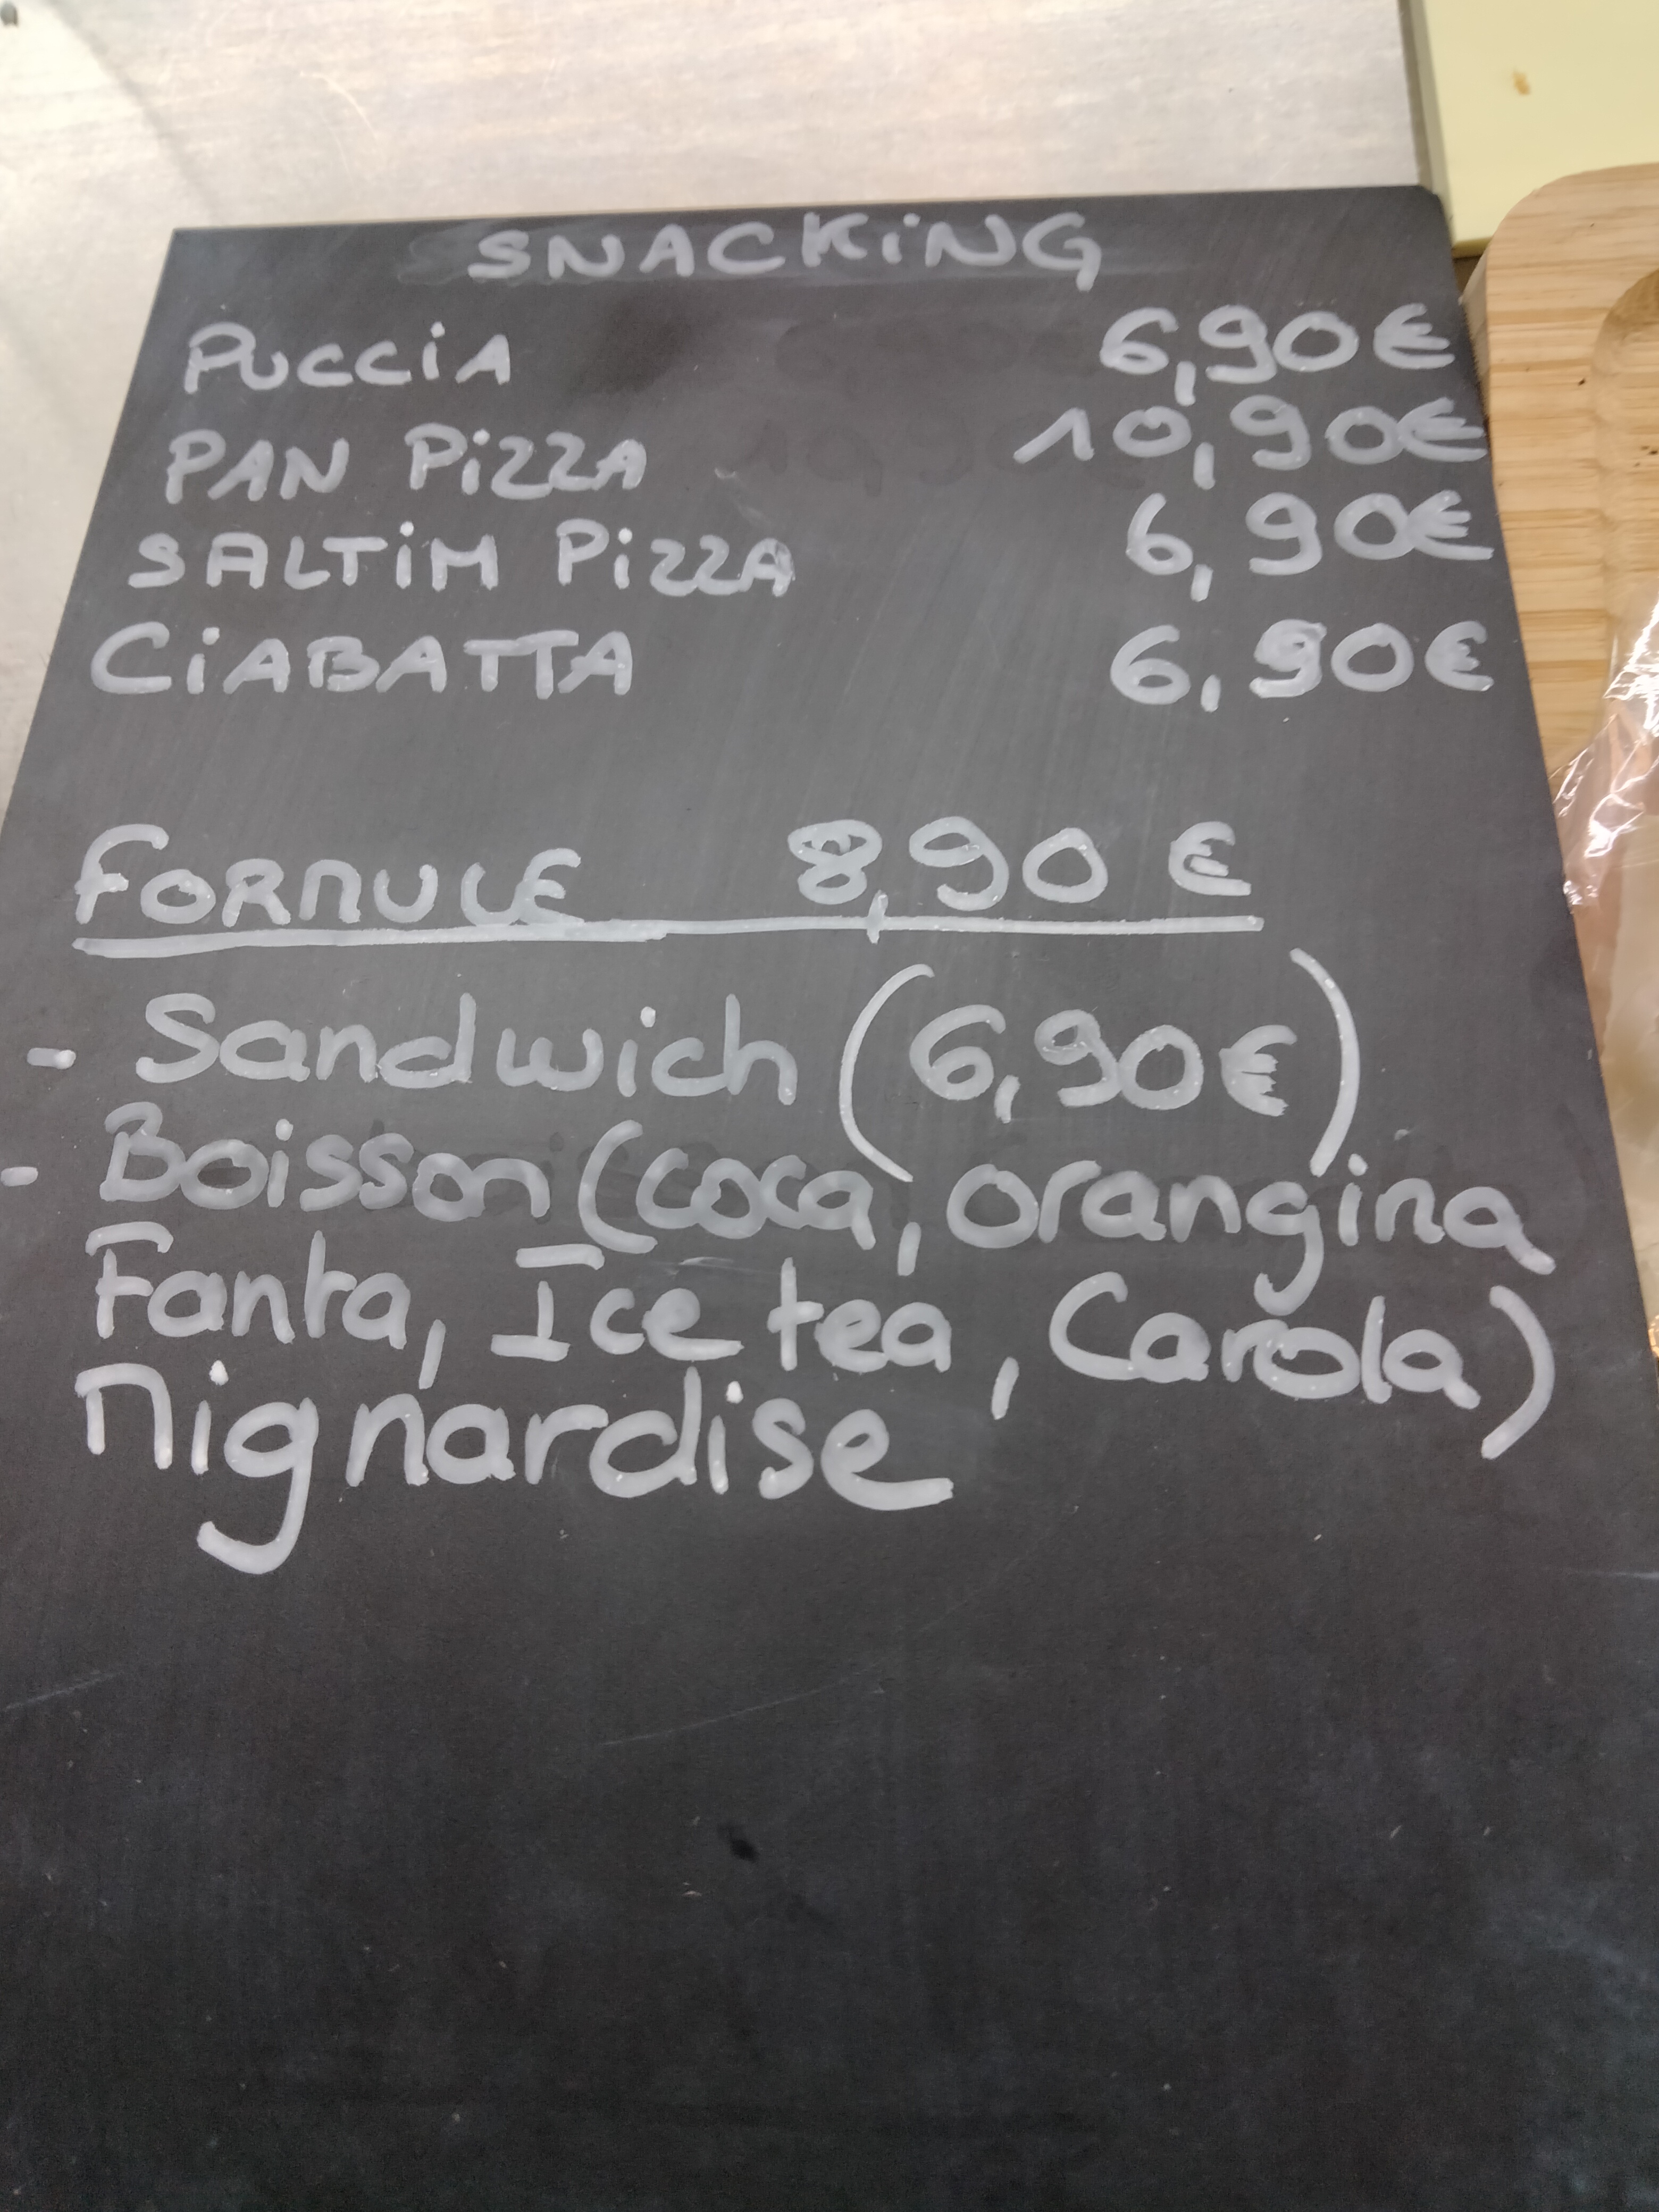 SNACKiNG
PUCCiA 6,90€
PAN PiZZA 10,90€
SALTiM PiZZA 6,90€
CiABATTA 6,90€
FORMULE 8,90 €
- Sandwich (6,90€)
- Boisson (coca, orangina
Fanta, Ice tea, Carola)
Mignardise